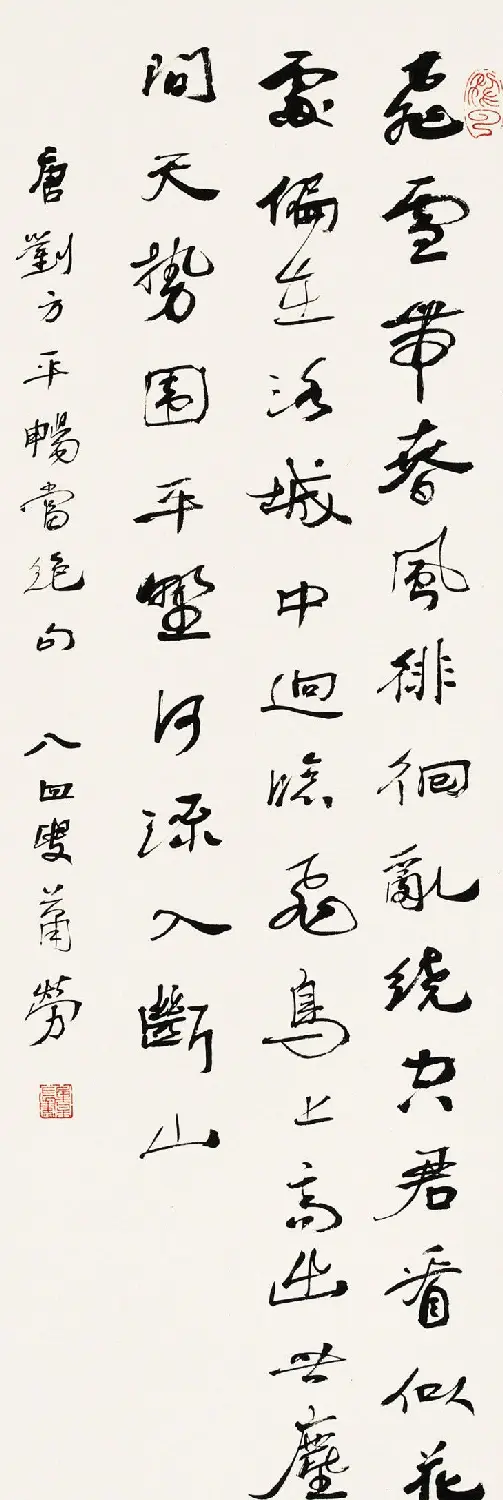 飛雪帶春風徘徊亂繞空君看似花
處偏在洛城中迥臨飛鳥上高出世塵
間天勢围平野河流入斷山
唐劉方平暢當絕句 八四叟蕭勞